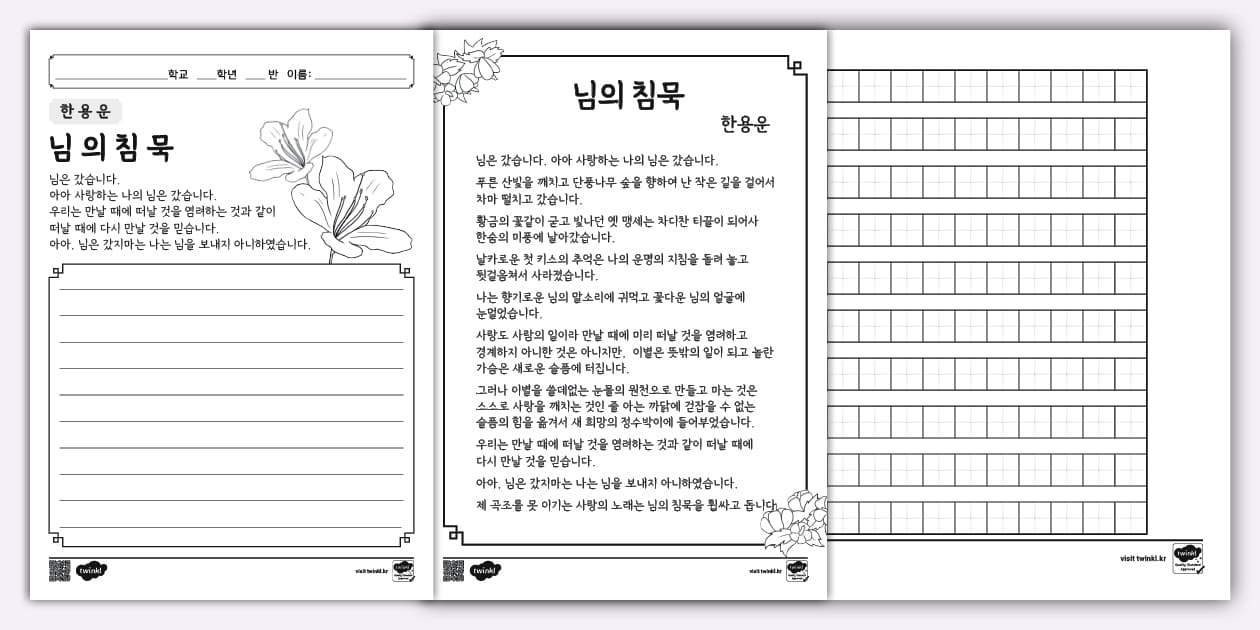 ____학교 ___학년 ___ 반 이름: ____
한용운
님의 침묵
님은 갔습니다.
아아 사랑하는 나의 님은 갔습니다.
우리는 만날 때에 떠날 것을 염려하는 것과 같이
떠날 때에 다시 만날 것을 믿습니다.
아아, 님은 갔지마는 나는 님을 보내지 아니하였습니다.
twinkl
visit twinkl.kr
twinkl
Quality Standard
Approved
님의 침묵
한용운
님은 갔습니다. 아아 사랑하는 나의 님은 갔습니다.
푸른 산빛을 깨치고 단풍나무 숲을 향하여 난 작은 길을 걸어서
차마 떨치고 갔습니다.
황금의 꽃같이 굳고 빛나던 옛 맹세는 차디찬 티끌이 되어서
한숨의 미풍에 날아갔습니다.
날카로운 첫 키스의 추억은 나의 운명의 지침을 돌려 놓고
뒷걸음쳐서 사라졌습니다.
나는 향기로운 님의 말소리에 귀먹고 꽃다운 님의 얼굴에
눈멀었습니다.
사랑도 사람의 일이라 만날 때에 미리 떠날 것을 염려하고
경계하지 아니한 것은 아니지만, 이별은 뜻밖의 일이 되고 놀란
가슴은 새로운 슬픔에 터집니다.
그러나 이별을 쓸데없는 눈물의 원천으로 만들고 마는 것은
스스로 사랑을 깨치는 것인 줄 아는 까닭에 걷잡을 수 없는
슬픔의 힘을 옮겨서 새 희망의 정수박이에 들어부었습니다.
우리는 만날 때에 떠날 것을 염려하는 것과 같이 떠날 때에
다시 만날 것을 믿습니다.
아아, 님은 갔지마는 나는 님을 보내지 아니하였습니다.
제 곡조를 못 이기는 사랑의 노래는 님의 침묵을 휩싸고 돕니다
twinkl
visit twinkl.kr
twinkl
Quality Standard
Approved
visit twinkl.kr
twinkl
Quality Standard
Approved